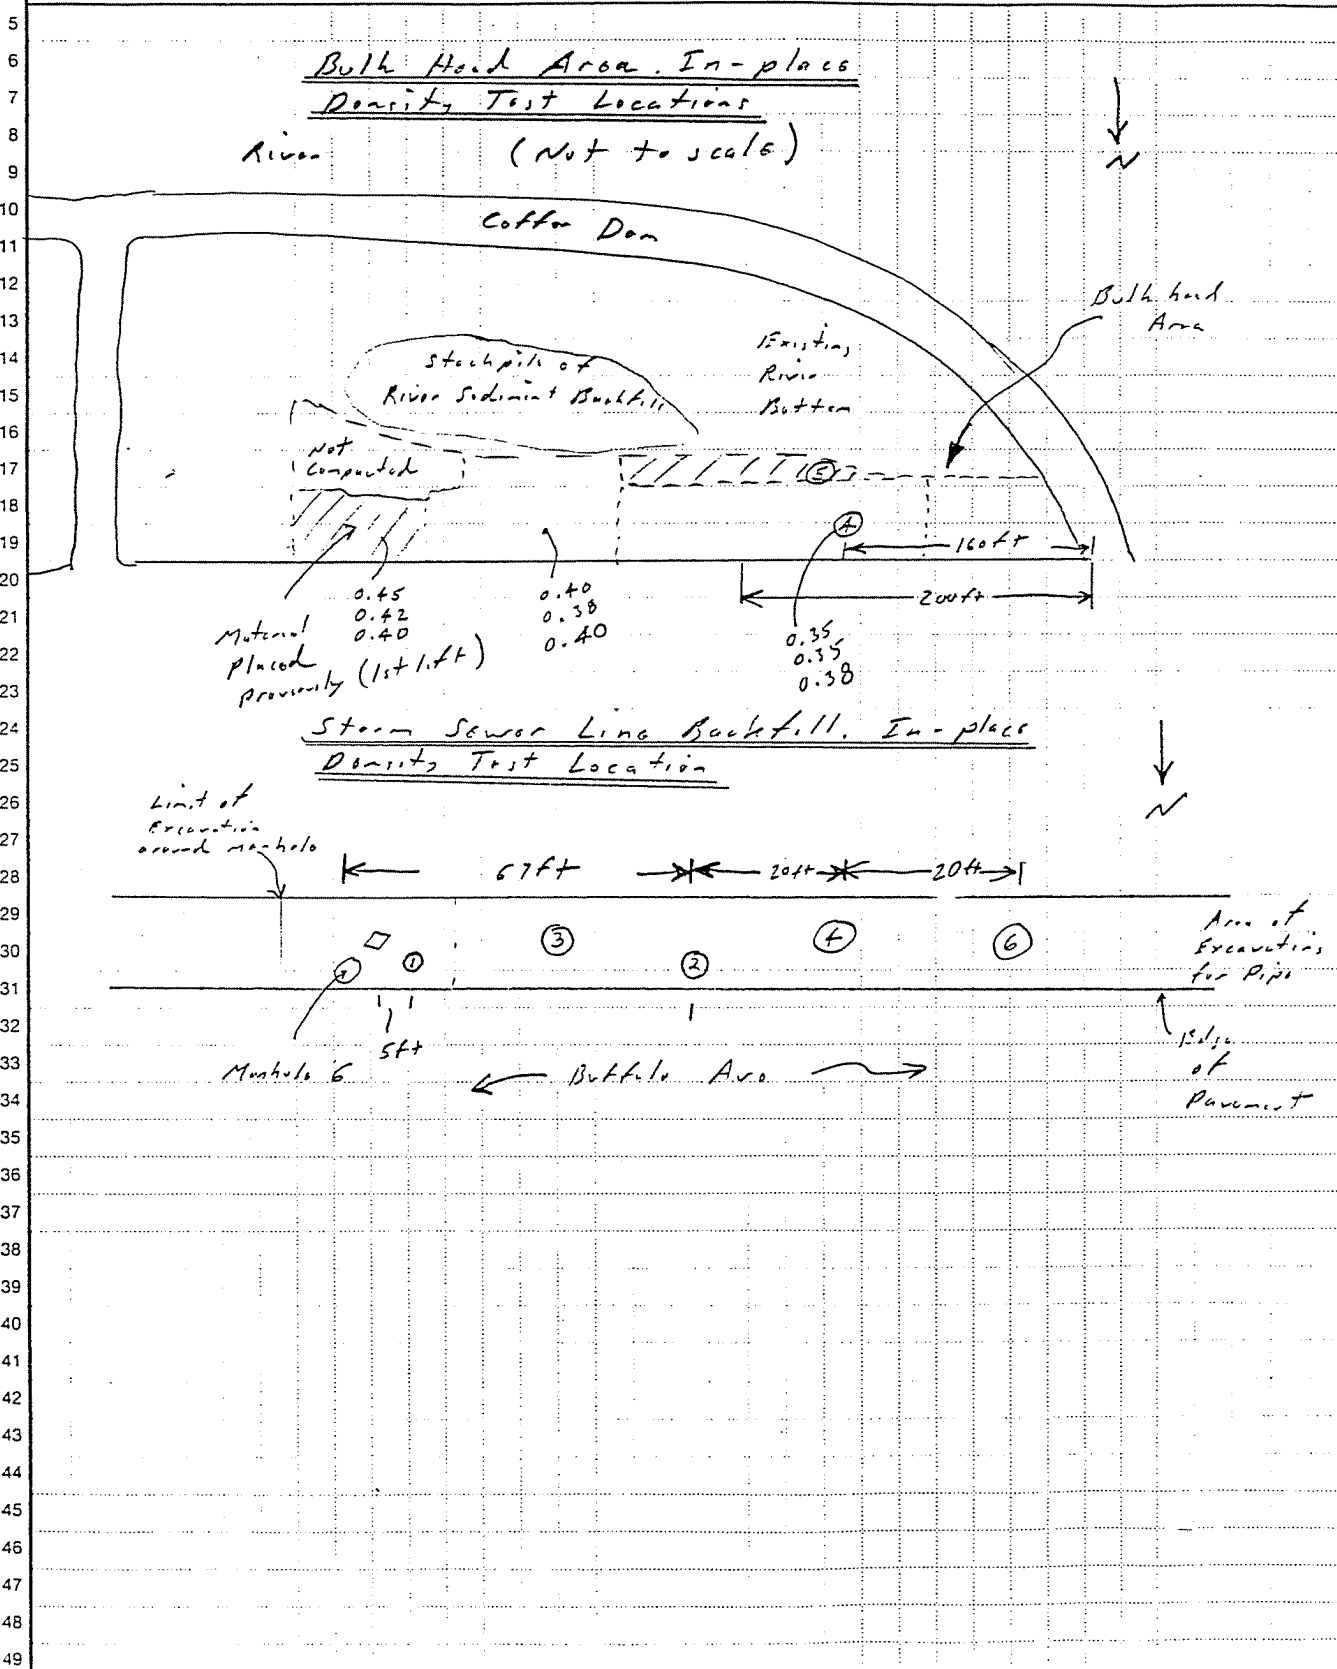 5
6
7
8
9
10
11
12
13
14
15
16
17
18
19
20
21
22
23
24
25
26
27
28
29
30
31
32
33
34
35
36
37
38
39
40
41
42
43
44
45
46
47
48
49
Bulk Head Area. In-place
Density Test Locations
(Not to scale)
River
N
Coffer Dam
Bulkhead
Area
Existing
River
Bottom
Stockpile of
River Sediment Backfill
Not
Compacted
5
4
160ft
200ft
0.45
0.42
0.40
0.40
0.38
0.40
0.35
0.35
0.38
Material
Placed
Previously (1st lift)
Storm Sewer Line Backfill. In-place
Density Test Location
N
Limit of
Excavation
around manhole
67ft
20ft
20ft
1
3
2
4
6
Area of
Excavation
for Pipe
5ft
Manhole 6
Buffalo Ave
Edge
of
Pavement